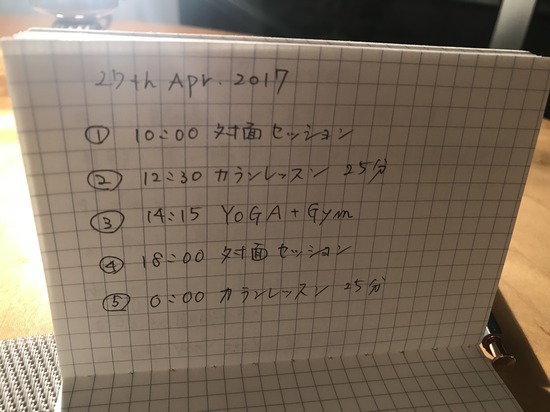 27th Apr. 2017
① 10:00 対面セッション
② 12:30 カランレッスン 25分
③ 14:15 YOGA + Gym
④ 18:00 対面セッション
⑤ 0:00 カランレッスン 25分